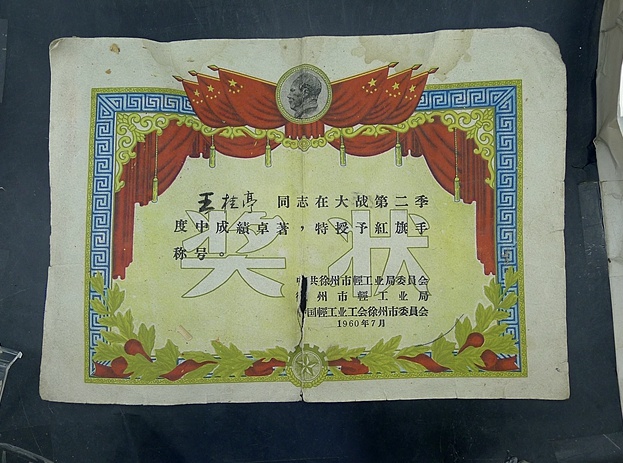 奖状
王桂亭 同志在大战第二季
度中成績卓著，特授予紅旗手
称号。
中共徐州市輕工业局委员会
徐州市輕工业局
中国輕工业工会徐州市委员会
1960年7月